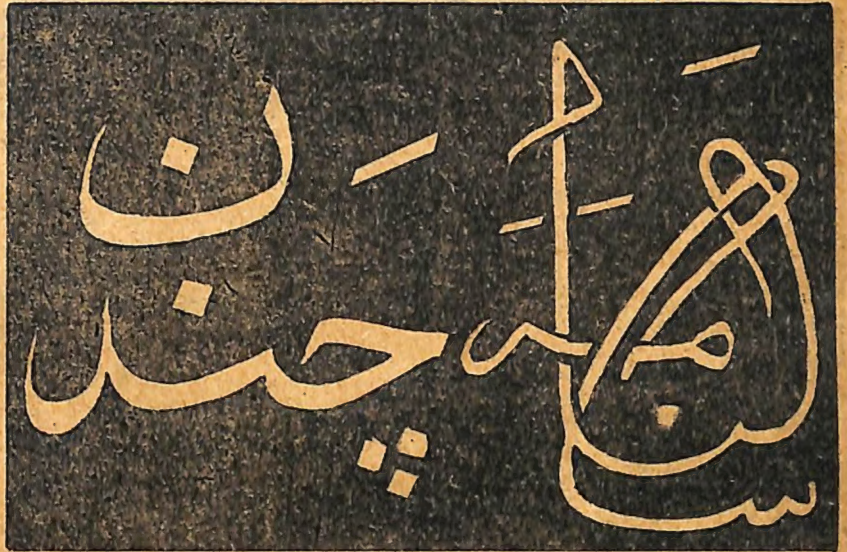 سالنامہ چندن